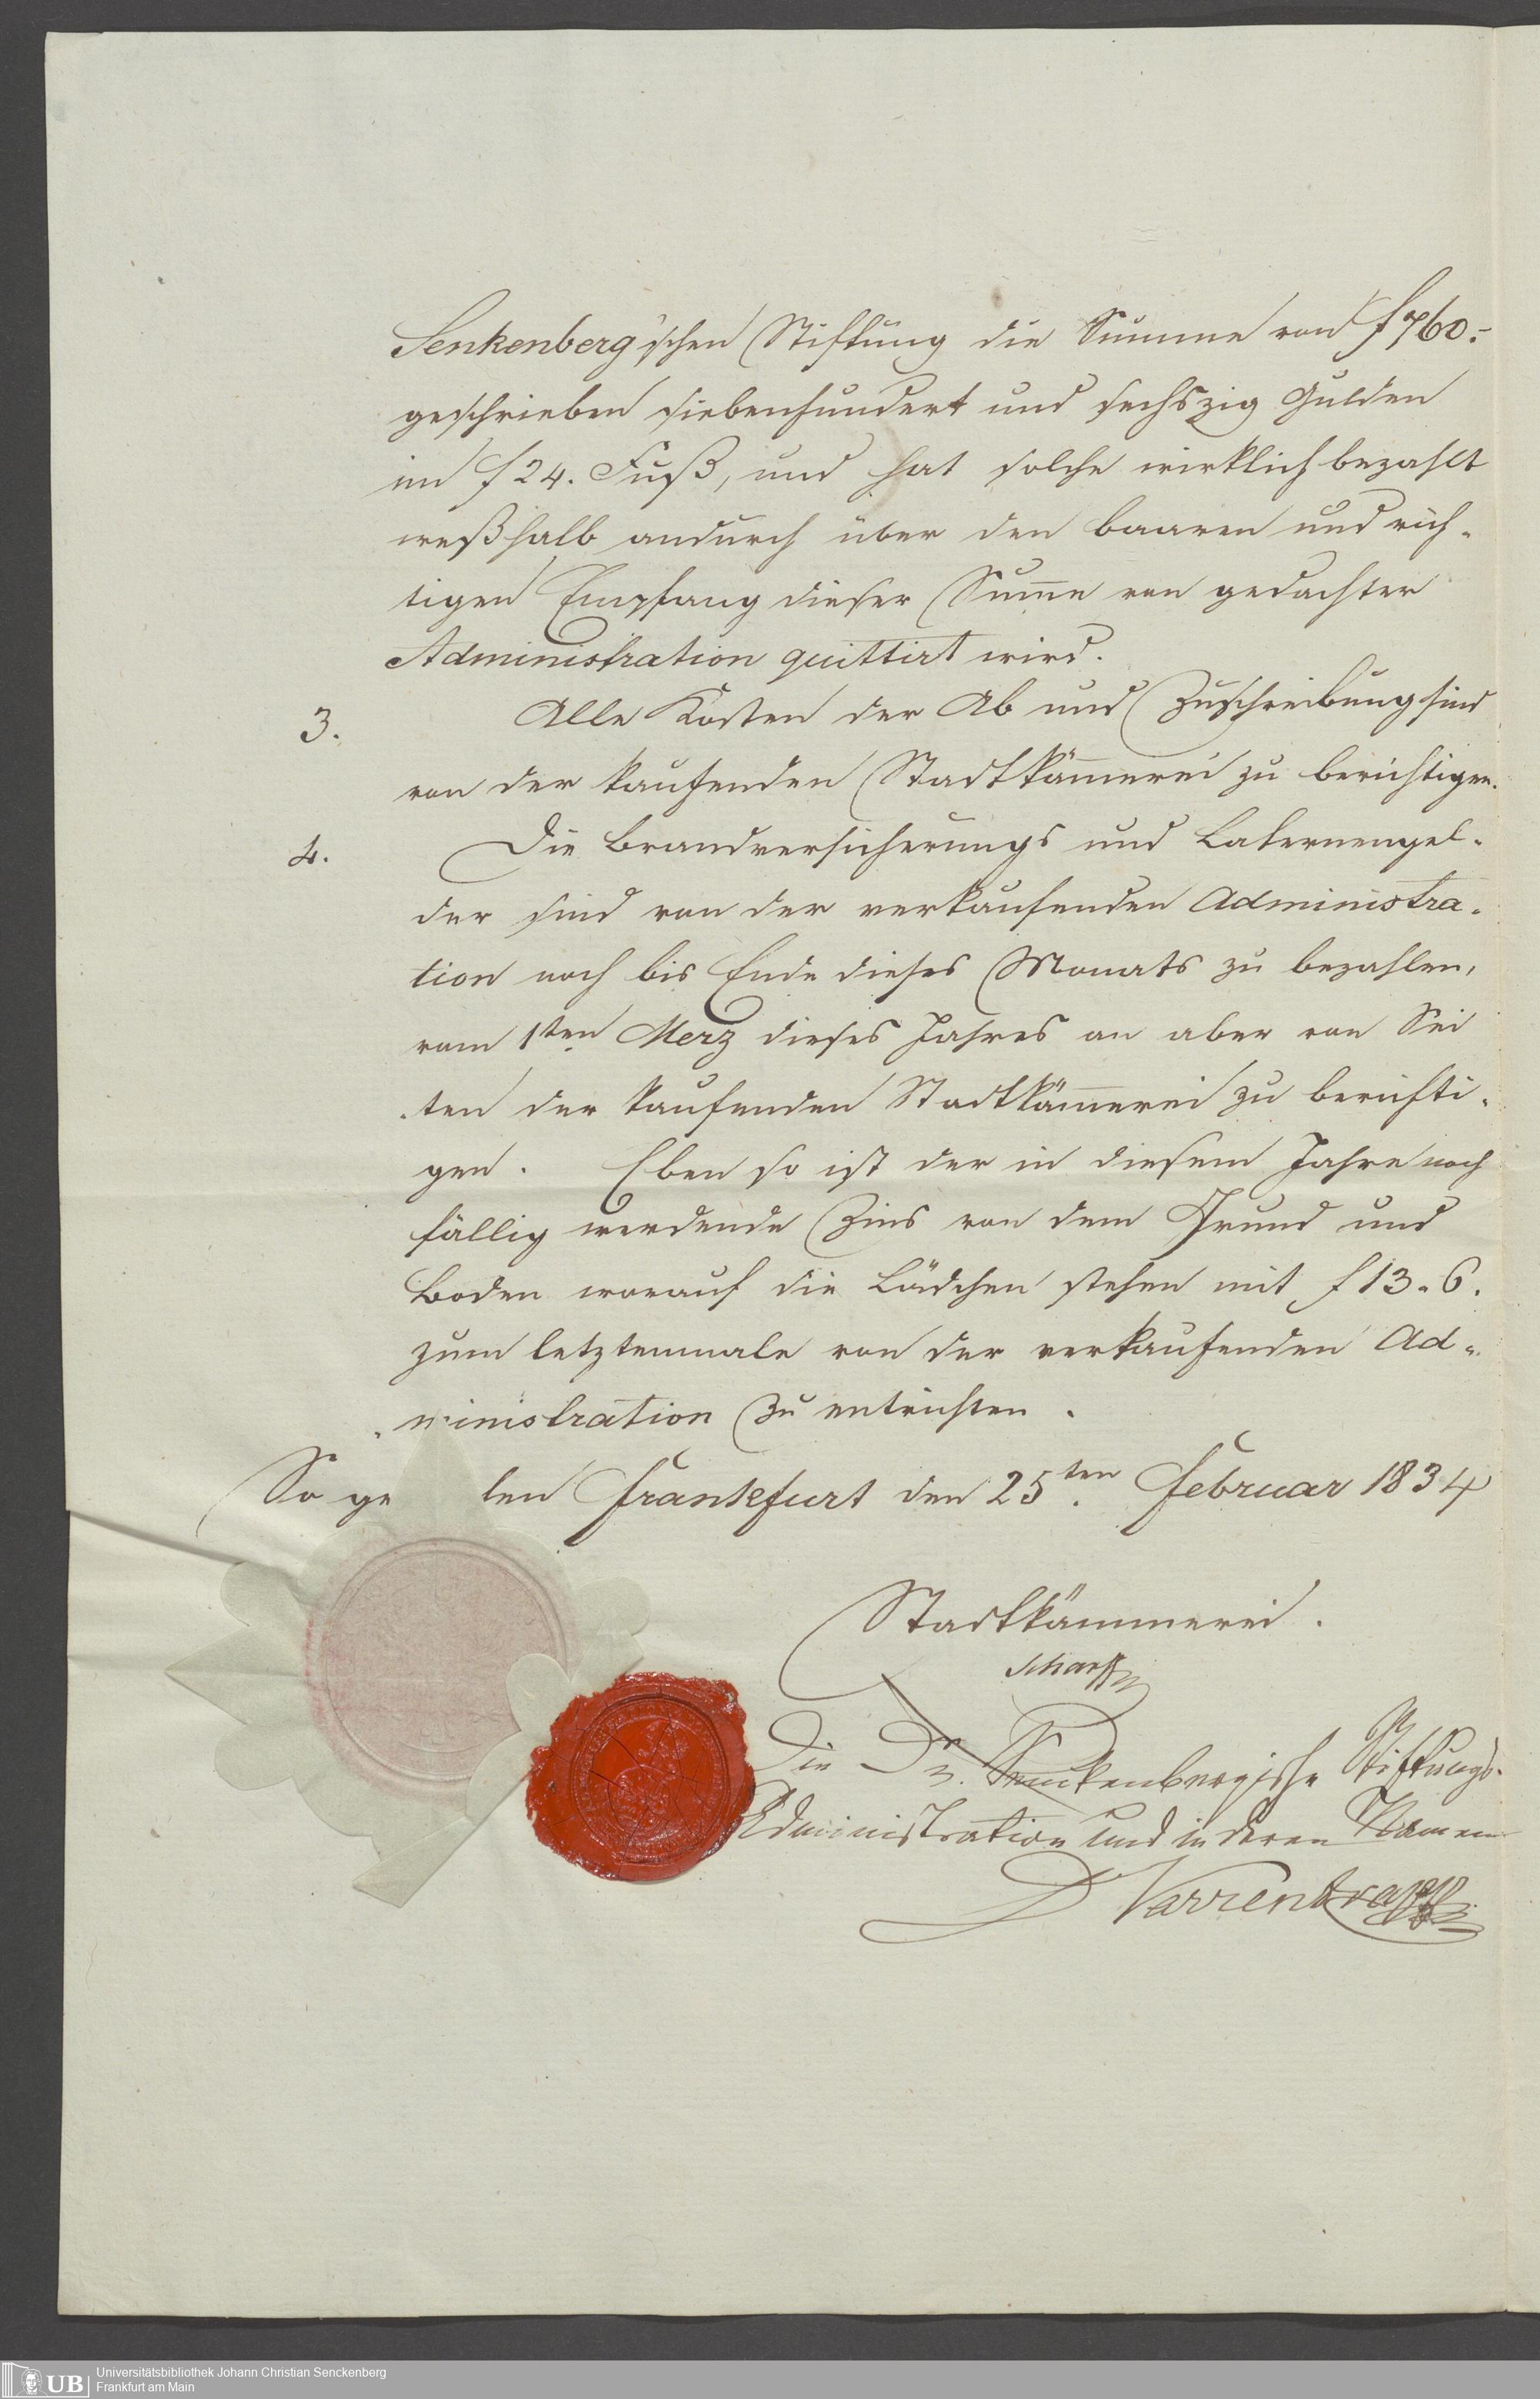 Senkenberg'schen Stiftung die Summe von f 760.-
geschrieben siebenhundert und sechszig Gulden
im f 24. Fuß, und hat solche wirklich bezahlt
weßhalb andurch über den baaren und rich-
tigen Empfang dieser Sum̅e von gedachter
Administration quittirt wird.
3. Alle Kosten der Ab und Zuschreibung sind
von der kaufenden Stadtkäm̅erei zu berichtigen.
4. Die Brandversicherungs und Laternengel-
der sind von der verkaufenden Administra-
tion noch bis Ende dieses Monats zu bezahlen,
vom 1ten Merz dieses Jahres an aber von Sei
-ten der kaufenden Stadtkäm̅erei zu berichti-
gen. Eben so ist der in diesem Jahre noch
fällig werdende Zins von dem Grund und
Boden worauf die Lädchen stehen mit f 13.6.
zum letztenmale von der verkaufenden Ad-
-ministration zu entrichten.
So ge len Frankfurt den 25ten Februar 1834
Stadtkämmerei.
Scharff
Die Dr. Senckenbergische Stiftungs-
Administration und in deren Namen
D Varrentrapp
UB Universitätsbibliothek Johann Christian Senckenberg
Frankfurt am Main